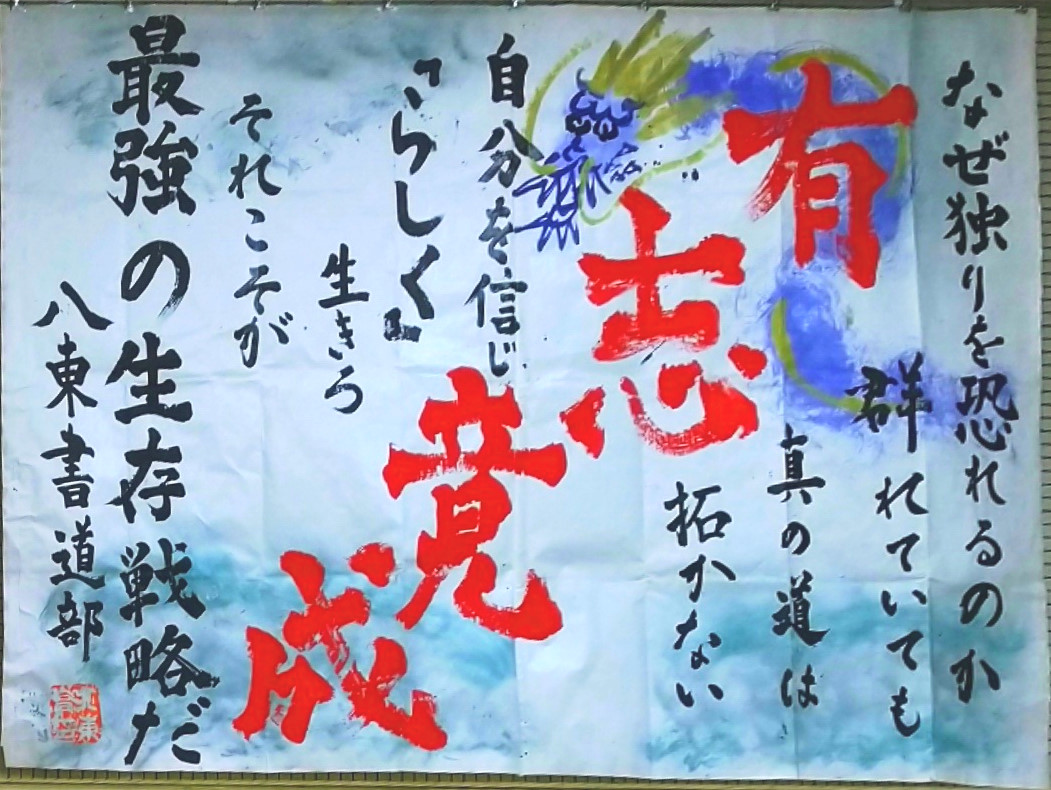 なぜ独りを恐れるのか
群れていても
真の道は
拓かない
有志竟成
自分を信じ
「らしく」
生きろ
それこそが
最強の生存戦略だ
八東書道部